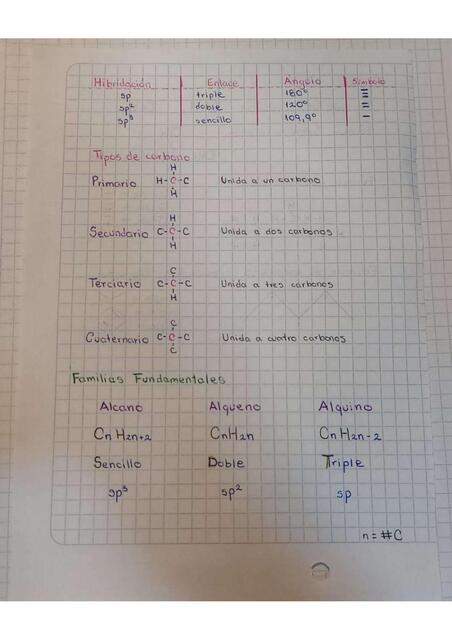 Hibridación Enlace Angulo Simbolo
sp triple 180° ≡
sp² doble 120° =
sp³ sencillo 109,9° -
Tipos de carbono
H
Primario H-C-C Unida a un carbono
H
H
Secundario C-C-C Unida a dos carbonos
H
C
Terciario C-C-C Unida a tres carbonos
H
C
Cuaternario C-C-C Unida a cuatro carbonos
C
Familias Fundamentales
Alcano Alqueno Alquino
CnH2n+2 CnH2n CnH2n-2
Sencillo Doble Triple
sp³ sp² sp
n = #C